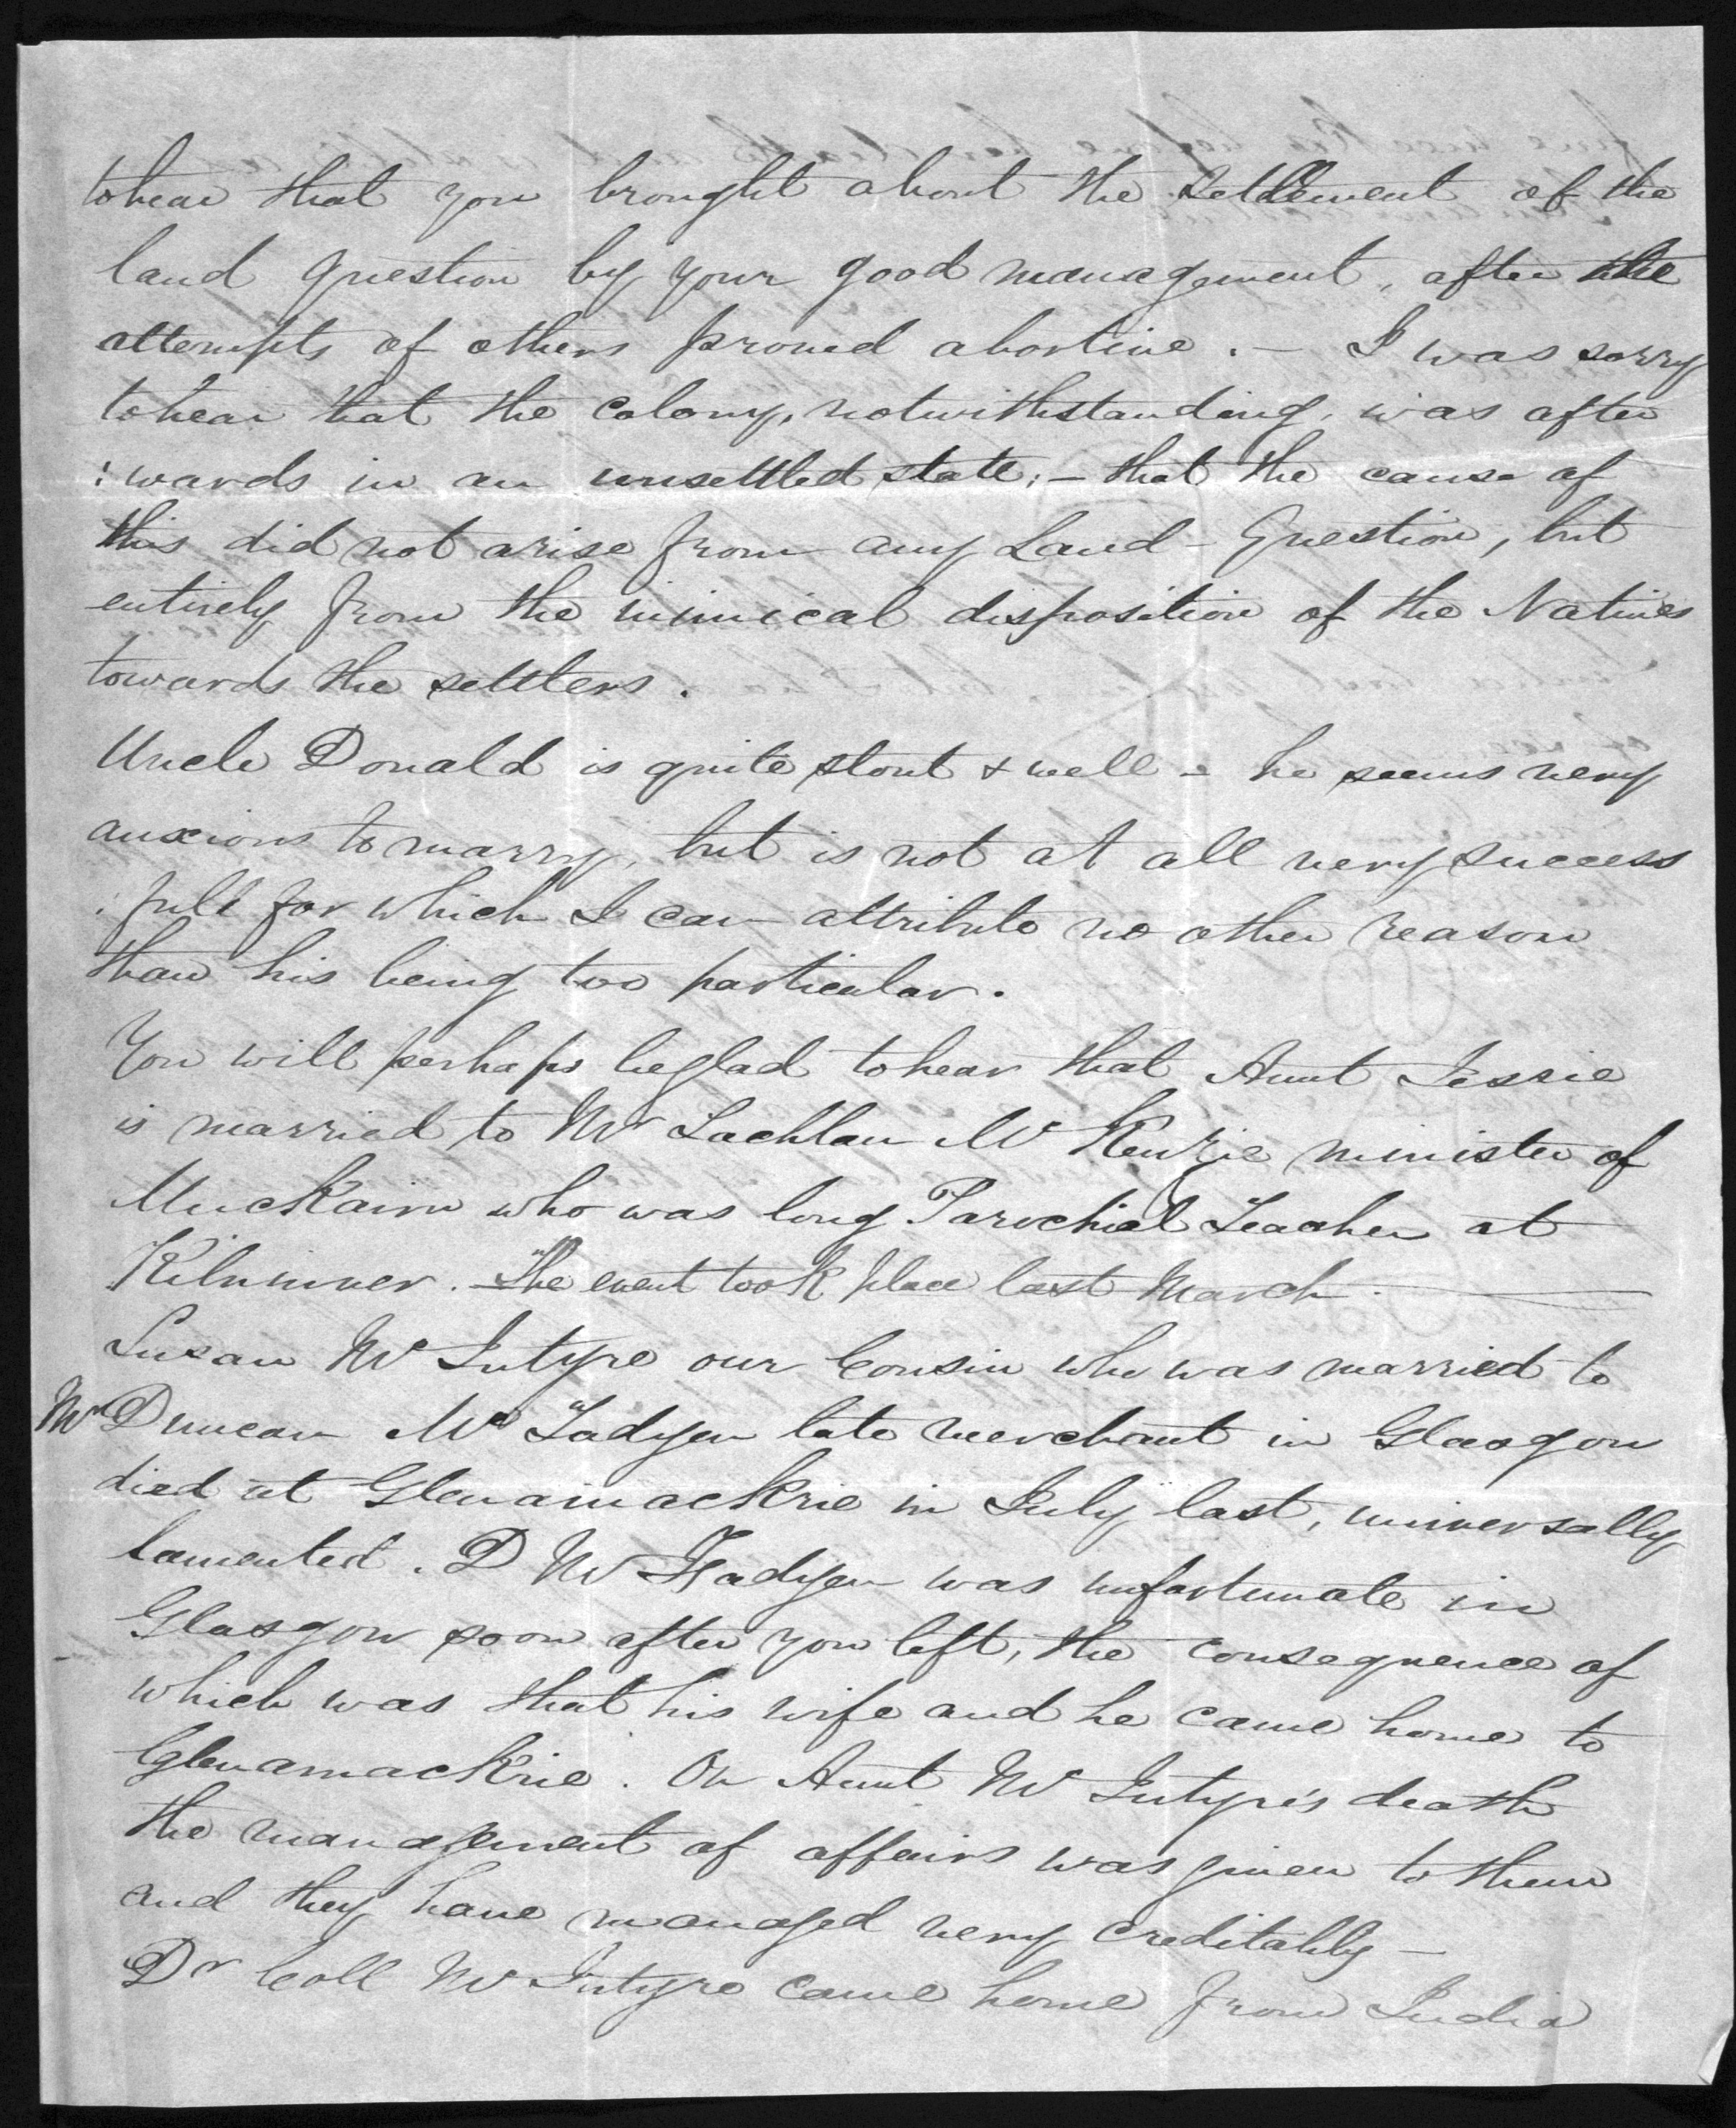 to hear that you brought about the settlement of the
land question by your good management, after the
attempts of others proved abortive. — I was sorry
to hear that the colony, notwithstanding, was after
: wards in an unsettled state; — that the cause of
this did not arise from any Land - Question, but
entirely from the inimical disposition of the Natives
towards the settlers.
Uncle Donald is quite stout & well - he seems very
anxious to marry, but is not at all very success
: full for which I can attribute no other reason
than his being too particular.
You will perhaps be glad to hear that Aunt Jessie
is married to Mr Lachlan Mc Kenzie minister of
Muckairn who was long Parochial Teacher at
Kilninver. The event took place last March.
Susan Mc Intyre our Cousin who was married to
Mr Duncan Mc Fadyen late merchant in Glasgow
died at Glenamackrie in July last, universally
lamented. D Mc Fadyen was unfortunate in
Glasgow soon after you left, the consequence of
which was that his wife and he came home to
Glenamackrie. On Aunt Mc Intyre's death
the management of affairs was given to them
and they have managed very creditably —
Dr Coll Mc Intyre came home from India